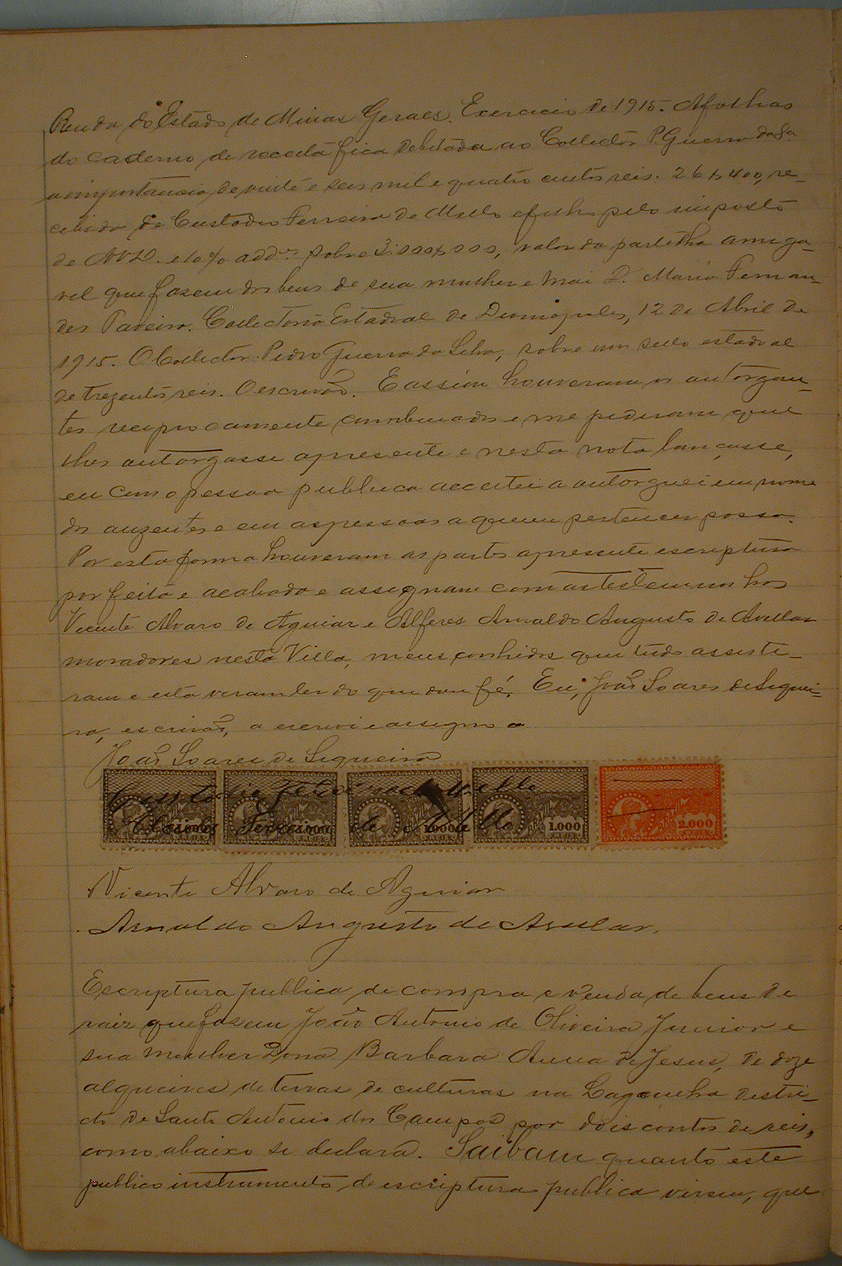 Renda do Estado de Minas Geraes. Exercicio de 1915. A folhas
do caderno de receita fica debitada ao Collector P. Guerra da Sa
a importancia de vinte e seis mil e quatro centos reis. 26$400, re-
cibida de Custodio Ferreira de Mello e filhos pelo imposto
de NVD. e 10% add.es sobre 3:000$000, valor da partilha amiga-
vel que fasem dos bens de sua mulher e mai D. Maria Fernan-
des Padeiro. Collectoria Estadoal de Divinopolis, 12 de Abril de
1915. O Collector Pedro Guerra da Silva, sobre um sello estadoal
de trezentos reis. O escrivão. E assim houveram os outorgan-
tes reciprocamente e me pediram que
lhes outorgasse a presente e nesta nota lançasse,
eu como pessoa publica acceitei a outorguei em nome
dos auzentes e em as pessoas a quem pertencer possa.
Por esta forma houveram as partes a presente escriptura
por feita e acabada e assignam com as testemunhas
Vicente Alvaro de Aguiar e Alferes Arnaldo Augusto de Avellar
moradores nesta Villa, meus conhidos que tudo assisti-
ram e esta veram ler do que dou fé. Eu, João Soares de Siquei-
ra, escrivão, a escrevi e assigno
João Soares de Siqueira
Custodio Ferreira de Mello
Alcides Ferreira de Mello
1.000 1.000 2.000
Vicente Alvaro de Aguiar
Arnaldo Augusto de Avellar.
Escriptura publica de compra e venda de bens de
raiz que fasem João Antonio de Oliveira Junior e
sua mulher Dona Barbara Anna de Jesus, de doze
alqueires de terras de culturas na Lagoinha destri-
cto de Santo Antonio dos Campos por dois contos de reis,
como abaixo se declara. Saibam quanto este
publico instrumento de escriptura publica virem, que